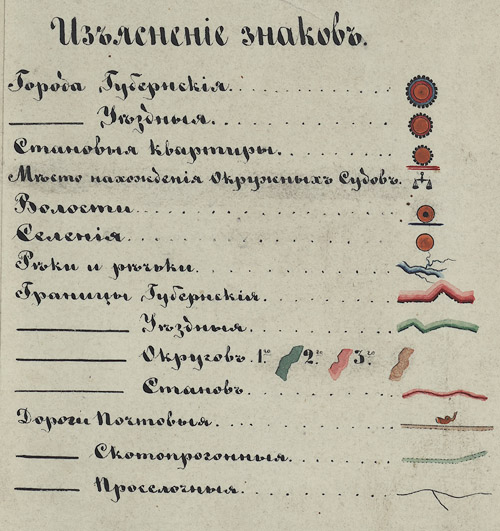 Изъясненіе знаковъ.
Города Губернскія.
Уѣздныя.
Становыя квартиры.
Мѣсто нахожденія Окружныхъ Судовъ.
Волости
Селенія.
Рѣки и рѣчьки.
Границы Губернскія.
Уѣздныя.
Округовъ. 1го 2го 3го
Становъ.
Дороги Почтовыя.
Скотопрогонныя.
Проселочныя.